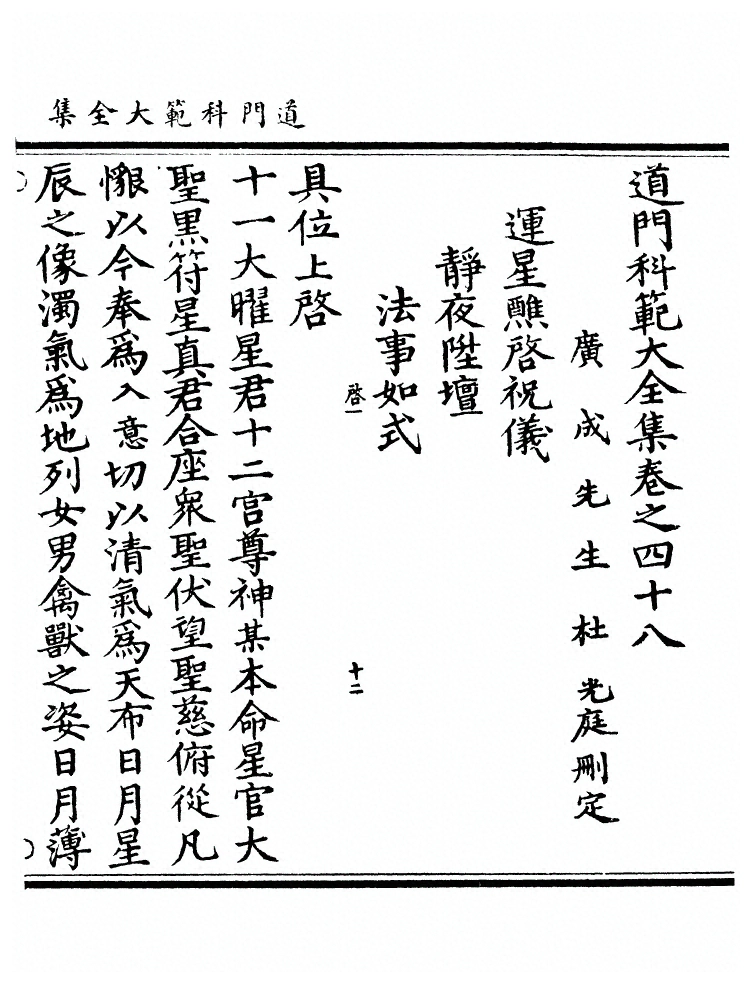 道門科範大全集
道門科範大全集卷之四十八
廣成先生杜光庭刪定
運星醮啓祝儀
靜夜陞壇
法事如式
啓一
十二
具位上啓
十一大曜星君十二宮尊神某本命星官大
聖黑符星真君合座衆聖伏望聖慈俯從凡
懇以今奉爲入意切以清氣爲天布日月星
辰之像濁氣爲地列女男禽獸之姿日月薄